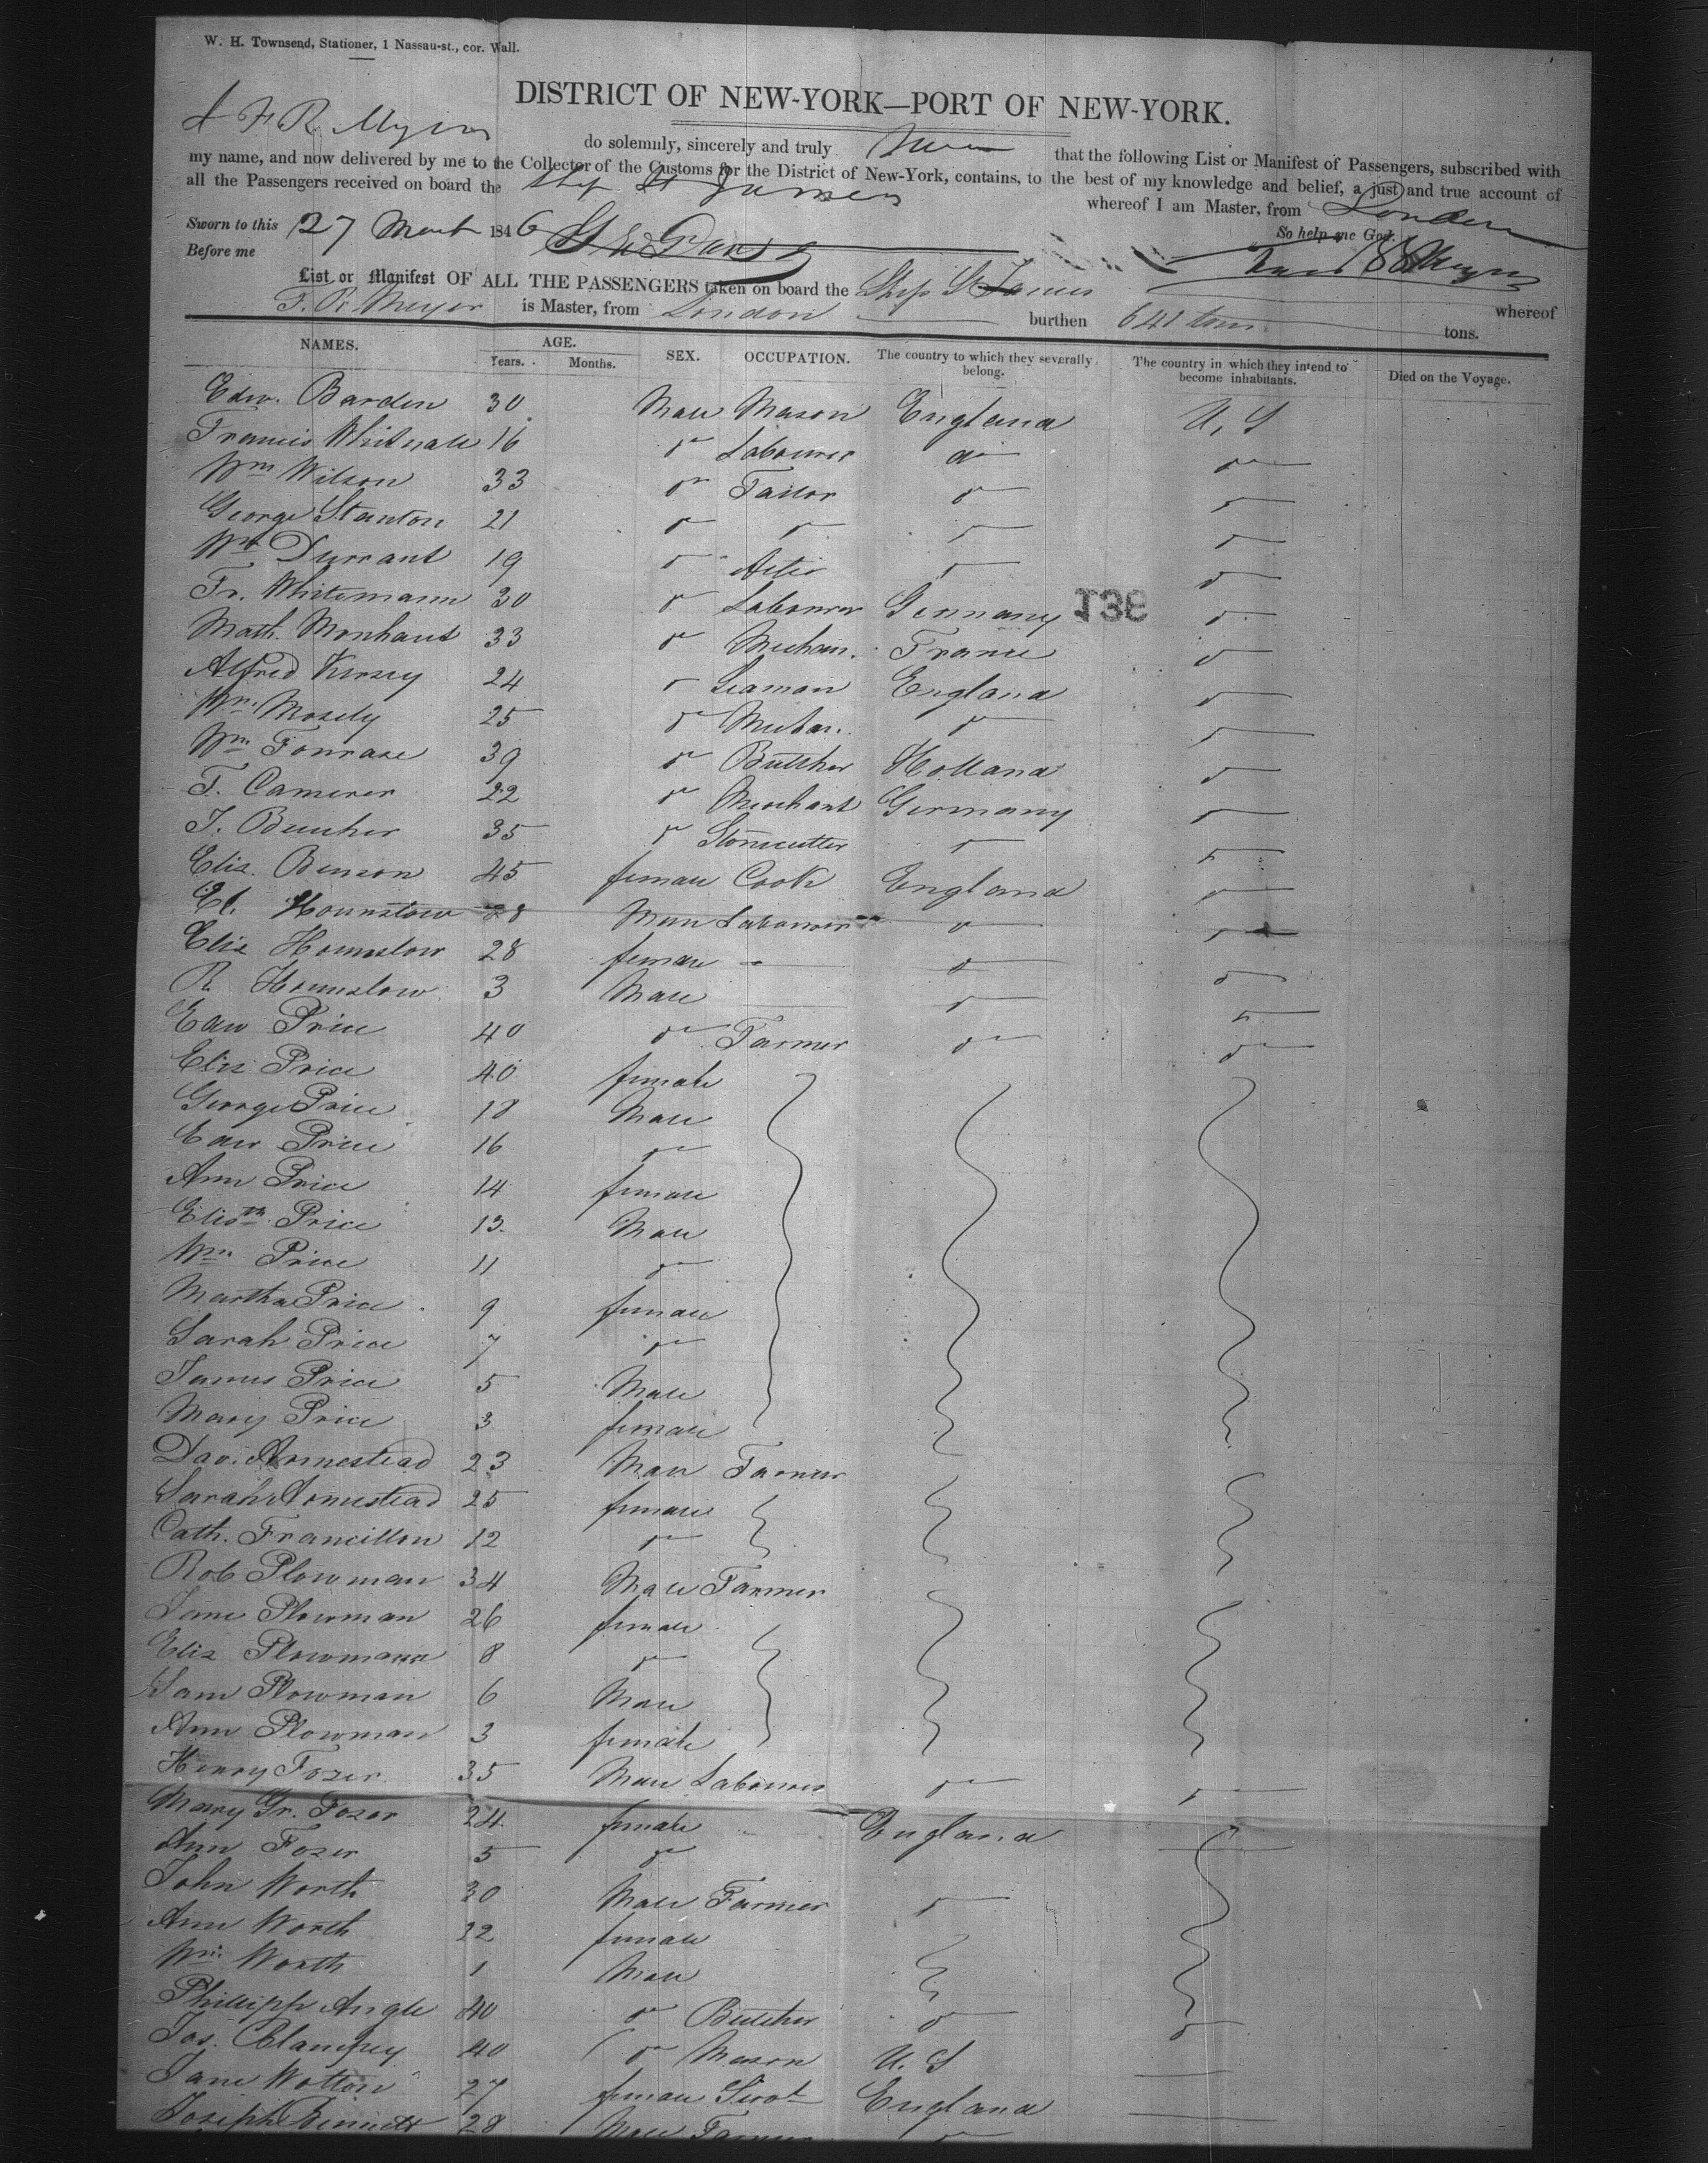 W. H. Townsend, Stationer, 1 Nassau-st., cor. Wall.
DISTRICT OF NEW-YORK—PORT OF NEW-YORK.
I F R Myers do solemnly, sincerely and truly that the following List or Manifest of Passengers, subscribed with
my name, and now delivered by me to the Collector of the Customs for the District of New-York, contains, to the best of my knowledge and belief, a just and true account of
all the Passengers received on board the Ship St James whereof I am Master, from London
Sworn to this 27 March 1846 So help me God.
Before me
List or Manifest OF ALL THE PASSENGERS taken on board the Ship St James whereof
F. R. Meyer is Master, from London burthen 641 tons tons.
NAMES. AGE. Years. Months. SEX. OCCUPATION. The country to which they severally belong. The country in which they intend to become inhabitants. Died on the Voyage.
Edw. Barden 30 Male Mason England U, S
Francis Whitnall 16 do Labourer do do
Wm Wilson 33 do Tailor do do
George Stanton 21 do do do do
Wm Durrant 19 do do do
Fr. Whitemann 30 do Labourer Germany do
136
Math. Monhaut 33 do Mechan. France do
Alfred Kersey 24 do Seaman England do
Wm Mosely 25 do Mechan. do do
Wm Fonrase 39 do Butcher Holland do
F. Camerer 22 do Merchant Germany do
J. Buucher 35 do Stonecutter do do
Elis. Benson 45 female Cook England do
El. Hounslow 28 Male Labourer do do
Elis Hounslow 28 female do do
R Hounslow 3 Male do do
Edw Price 40 do Farmer do do
Elis Price 40 female
George Price 18 Male
Edw Price 16 do
Ann Price 14 female
Elisth Price 13 Male
Wm Price 11 do
Martha Price 9 female
Sarah Price 7 do
James Price 5 Male
Mary Price 3 female
Dav. Armestead 23 Male Farmer
Sarah Armestead 25 female
Cath. Francillon 12 do
Rob Plowman 34 Male Farmer
Jane Plowman 26 female
Elis Plowmann 8 do
Sam Plowman 6 Male
Ann Plowman 3 female
Henry Fozer 35 Male Labourer do do
Mary Gr. Fozer 24 female England
Ann Fozer 5 do
John Worth 30 Male Farmer do
Ann Worth 22 female
Wm Worth 1 Male
Phillipp Angle 40 do Butcher do do
Jos. Clampey 40 do Mason U. S
Jane Wotton 27 female Servt England
Joseph Bennett 28 Male Farmer do